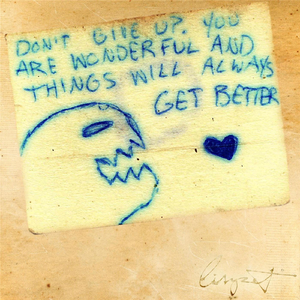 DON'T GIVE UP. YOU
ARE WONDERFUL AND
THINGS WILL ALWAYS
GET BETTER